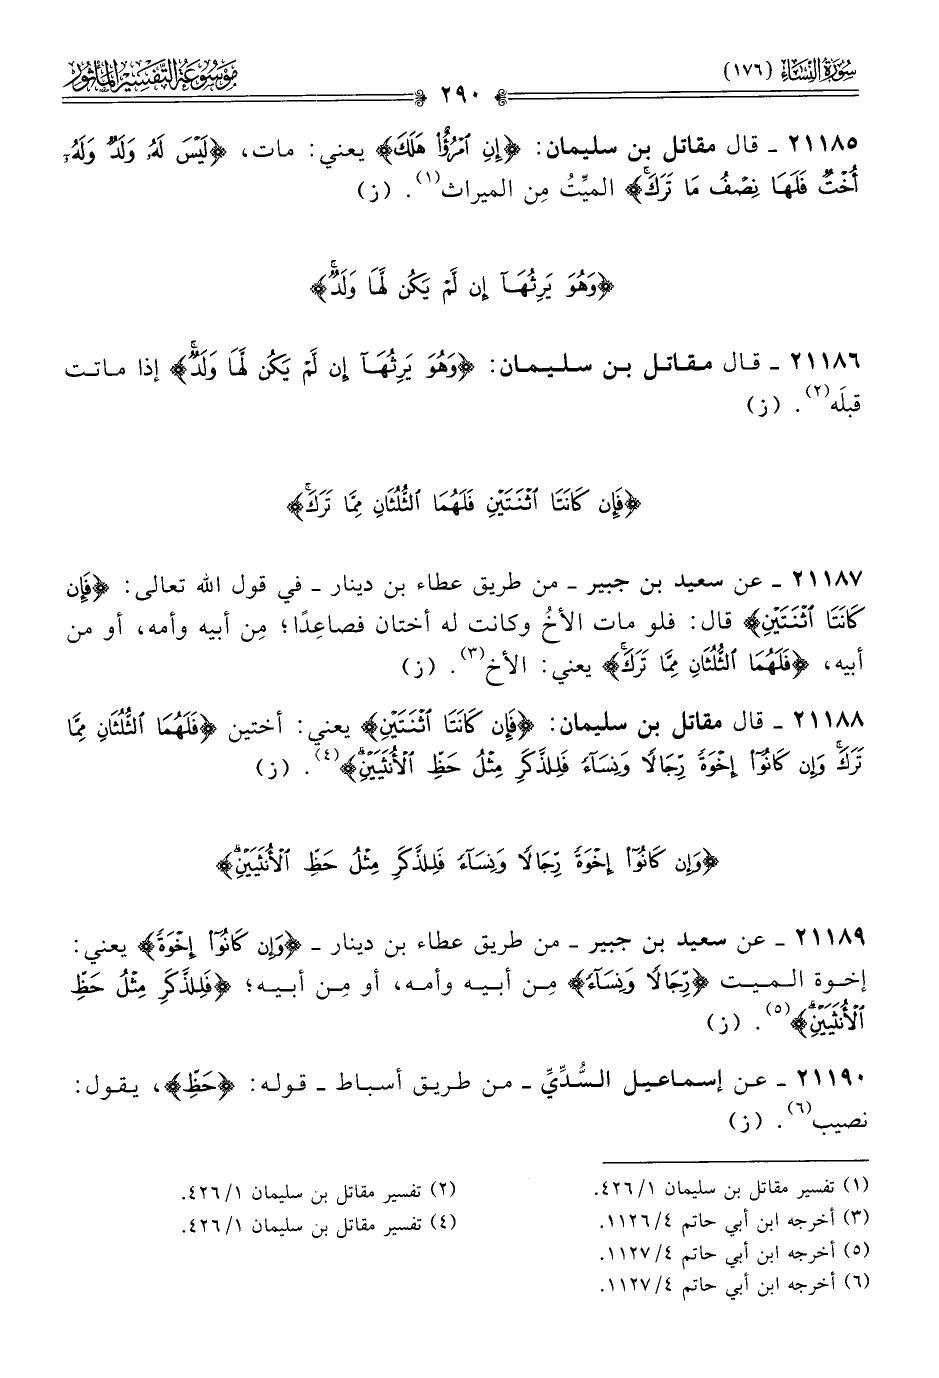 سُورَةُ النِّسَاءِ (١٧٦)
٢٩٠
مَوْسُوعَةُ التَّفْسِيرِ المَأْثُور
٢١١٨٥ ـ قال مقاتل بن سليمان: ﴿إِنِ ٱمْرُؤٌا۟ هَلَكَ﴾ يعني: مات، ﴿لَيْسَ لَهُۥ وَلَدٌ وَلَهُۥٓ
أُخْتٌ فَلَهَا نِصْفُ مَا تَرَكَۚ﴾ الميِّتُ مِن الميراث(١). (ز)
﴿وَهُوَ يَرِثُهَآ إِن لَّمْ يَكُن لَّهَا وَلَدٌۚ﴾
٢١١٨٦ ـ قال مقاتل بن سليمان: ﴿وَهُوَ يَرِثُهَآ إِن لَّمْ يَكُن لَّهَا وَلَدٌۚ﴾ إذا ماتت
قبلَه(٢). (ز)
﴿فَإِن كَانَتَا ٱثْنَتَيْنِ فَلَهُمَا ٱلثُّلُثَانِ مِمَّا تَرَكَۚ﴾
٢١١٨٧ ـ عن سعيد بن جبير ـ من طريق عطاء بن دينار ـ في قول الله تعالى: ﴿فَإِن
كَانَتَا ٱثْنَتَيْنِ﴾ قال: فلو مات الأخُ وكانت له أختان فصاعِدًا؛ مِن أبيه وأمه، أو من
أبيه، ﴿فَلَهُمَا ٱلثُّلُثَانِ مِمَّا تَرَكَۚ﴾ يعني: الأخ(٣). (ز)
٢١١٨٨ ـ قال مقاتل بن سليمان: ﴿فَإِن كَانَتَا ٱثْنَتَيْنِ﴾ يعني: أختين ﴿فَلَهُمَا ٱلثُّلُثَانِ مِمَّا
تَرَكَۚ وَإِن كَانُوٓا۟ إِخْوَةً رِّجَالًا وَنِسَآءً فَلِلذَّكَرِ مِثْلُ حَظِّ ٱلْأُنثَيَيْنِۗ﴾(٤). (ز)
﴿وَإِن كَانُوٓا۟ إِخْوَةً رِّجَالًا وَنِسَآءً فَلِلذَّكَرِ مِثْلُ حَظِّ ٱلْأُنثَيَيْنِۗ﴾
٢١١٨٩ ـ عن سعيد بن جبير ـ من طريق عطاء بن دينار ـ ﴿وَإِن كَانُوٓا۟ إِخْوَةً﴾ يعني:
إخوة الميت ﴿رِّجَالًا وَنِسَآءً﴾ مِن أبيه وأمه، أو مِن أبيه؛ ﴿فَلِلذَّكَرِ مِثْلُ حَظِّ
ٱلْأُنثَيَيْنِۗ﴾(٥). (ز)
٢١١٩٠ ـ عن إسماعيل السُّدِّيِّ ـ من طريق أسباط ـ قوله: ﴿حَظِّ﴾، يقول:
نصيب(٦). (ز)
(١) تفسير مقاتل بن سليمان ١/ ٤٢٦.
(٢) تفسير مقاتل بن سليمان ١/ ٤٢٦.
(٣) أخرجه ابن أبي حاتم ٤/ ١١٢٦.
(٤) تفسير مقاتل بن سليمان ١/ ٤٢٦.
(٥) أخرجه ابن أبي حاتم ٤/ ١١٢٧.
(٦) أخرجه ابن أبي حاتم ٤/ ١١٢٧.